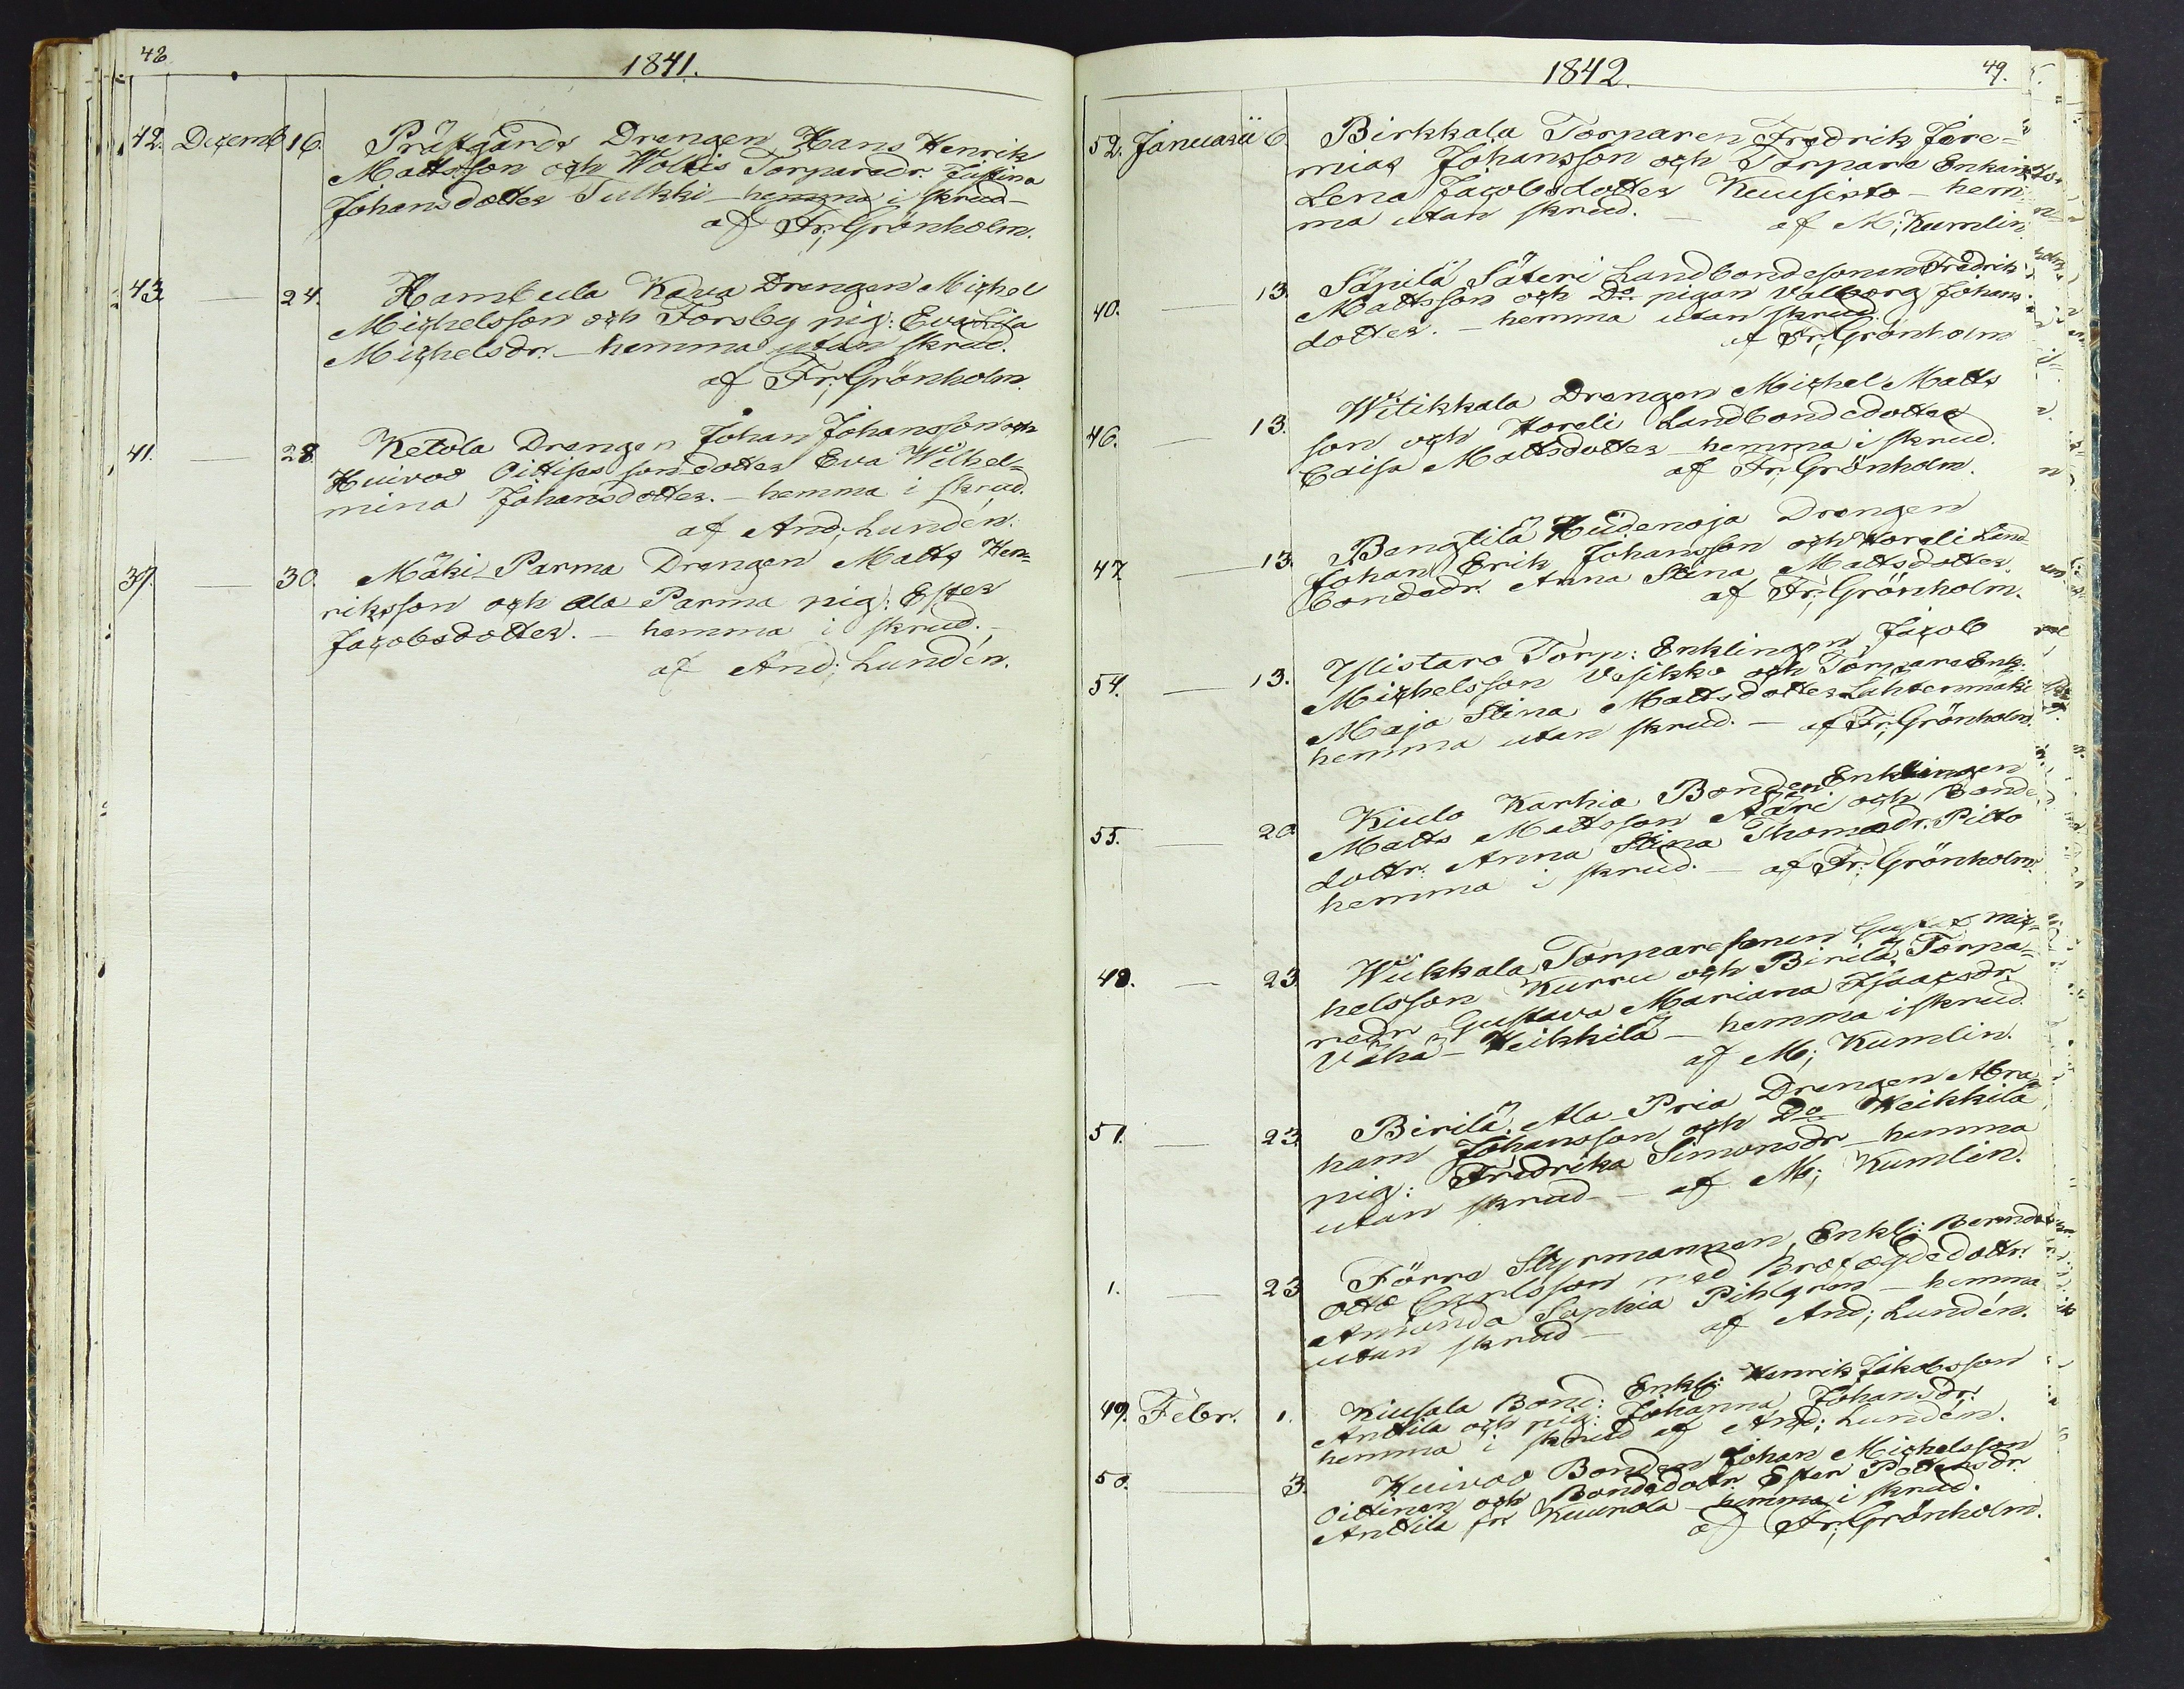 48
1841.
42. Decemb 16. Prästgårds Drengen Hans Henrik
Mattsson och Woltis Torparedr. Justina
Johansdotter Tulkki - hemma i skrud -
af Fr; Grönholm.
43. — 24. Hambula Kaua Drengen Michel
Michelsson och Forsby pig: Eva Lisa
Michelsdr. - hemma utan skrud.
af Fr; Grönholm.
41. — 28. Ketola Drengen Johan Johansson och
Huivoo Oittises sondotter Eva Wilhel=
mina Johansdotter. - hemma i skrud.
af And; Lundén.
37. — 30. Mäki-Parma Drengen Matts Hen=
riksson och Ala Parma pig: Ester
Jacobsdotter. - hemma i skrud. -
af And; Lundén.
1842.
49.
52. Januarii 6. Birkkala Torparen Fredrik Jere=
mias Johansson och Torpare Enkan
Lena Jacobsdotter Kuusisto - hem
ma utan skrud. - af M; Kumlin
40. — 13. Säpilä Säteri Landbondesonen Fredrik
Mattsson och Do pigan Valborg Johans
dotter. - hemma utan skrud.
af Fr; Grönholm
46. — 13. Witikkala Drengen Michel Matts
son och Horeli Landbondedotter
Caisa Mattsdotter - hemma i skrud.
af Fr; Grönholm.
47. — 13. Bengtilä Hiidenoja Drengen
Johan Erik Johansson och Horeli Land
bondedr. Anna Stina Mattsdotter
af Fr; Grönholm.
54. — 13. Ylistaro Torp: Enklingen Jacob
Michelsson Vesikko och Torpare Enk:
Maja Stina Mattsdotter Lähtenmäki
hemma utan skrud. - af Fr; Grönholm.
55. — 20. Kiulo Karhia Bonden Enklingen
Matts Mattsson Äari och Bonde
dottr. Anna Stina Thomasdr. Pilto
hemma i skrud. - af Fr; Grönholm.
48. — 23. Wiikkala Torparesonen Gustaf Mic=
helsson Kurru och Birilä Torpa=
redr Gustava Mariana Isaacsdr.
Vähä-Heikkilä - hemma i skrud.
af M; Kumlin.
51. — 23. Birilä Ala-Pria Drengen Abra=
ham Johansson och Do Heikkilä
pig: Fredrika Simonsdr - hemma
utan skrud - af M; Kumlin.
1. — 23 Förre Styrmannen, Enkl: Bernds
Otto Carlsson med Brofogdedottr.
Amanda Sophia Pihlgren - hemma
utan skrud - af And; Lundén.
49. Febr. 1. Kiusala Bond: Enkl: Henrik Jakobsson
Anttila och pig: Johanna Johansdr.
hemma i skrud af And; Lundén.
50. — 3. Huivoo Bonden Johan Michelsson
Oittinen och Bondedottr. Ester Pettersdr.
Anttila fr. Kuurola hemma i skrud.
af Fr; Grönholm.